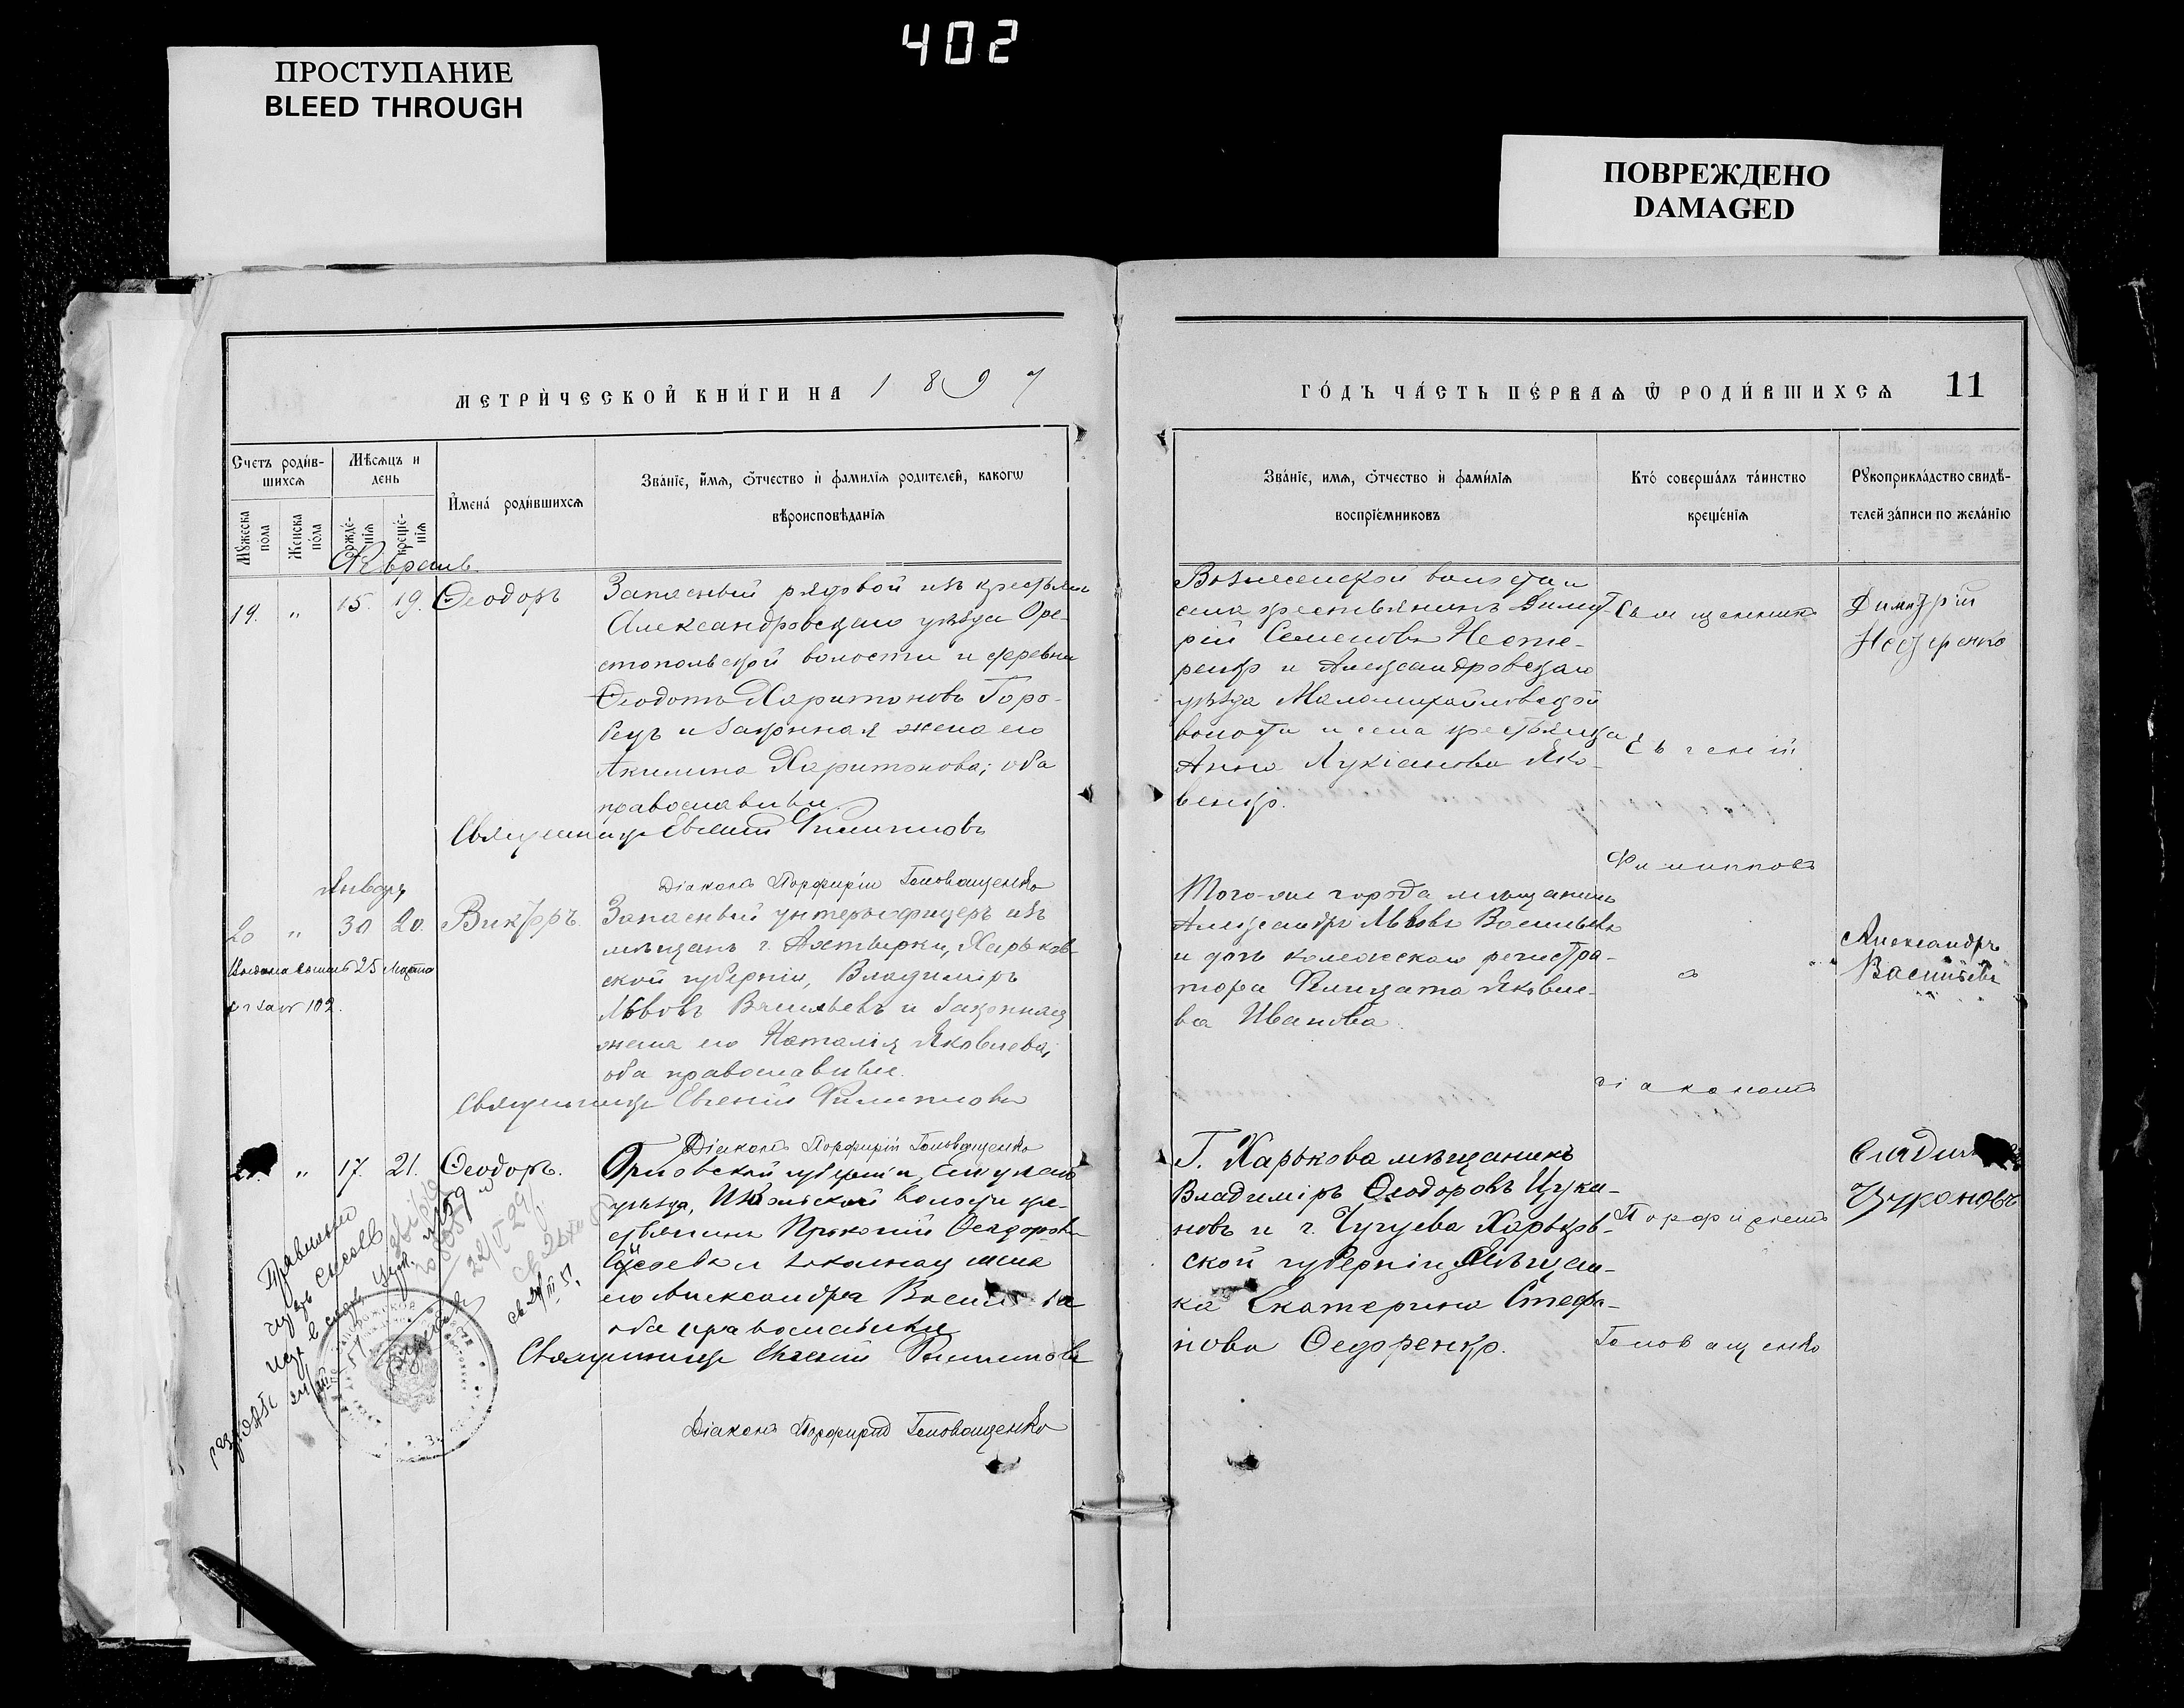 402
ПРОСТУПАНИЕ
BLEED THROUGH
ПОВРЕЖДЕНО
DAMAGED
МЕТРИЧЕСКОЙ КНИГИ НА 1897
ГОДЪ ЧАСТЬ ПЕРВАѦ Ѿ РОДИВШИХСѦ 11
Счетъ родив-
шихсѧ
Мѣсѧцъ и
день
Мꙋжеска
пола
Женска
пола
рожде-
нїѧ
креще-
нїѧ
Имена родившихсѧ
Званїе, имѧ, ѿчество и фамилїѧ родителей, какогѡ
вѣроисповѣданїѧ
Званїе, имѧ, ѿчество и фамилїѧ
воспрїемниковъ
Кто совершалъ таинство
крещенїѧ
Рꙋкоприкладство свидѣ-
телей записи по желанїю
Февраль.
19. " 15. 19. Ѳеодоръ
Запасный рядовой изъ крестьянъ
Александровскаго уѣзда Оре-
стопольской волости и деревни
Ѳеодотъ Харитоновъ Горо-
бецъ и законная жена его
Акилина Харитонова; оба
православные.
Священникъ Евгеній Филипповъ
Діаконъ Порфирій Головащенко
Вознесенской волости и
села крестьянинъ Димит-
рій Семеновъ Несте-
ренко и Александровскаго
уѣзда Маломихайловской
волости и села крестьянка
Анна Лукіанова Яко-
венко.
Священникъ
Евгеній
Филипповъ
Димитрій
Нестеренко
Январь
20 " 30 20. Викторъ
25 Марта
за № 102.
Запасный унтеръ-офицеръ изъ
мѣщанъ г. Ахтырки, Харьков-
ской губерніи, Владимиръ
Львовъ Васильевъ и законная
жена его Наталія Яковлева;
оба православные.
Священникъ Евгеній Филипповъ
Діаконъ Порфирій Головащенко
Того-же города мѣщанинъ
Александръ Львовъ Васильевъ
и дочь коллежскаго регистра-
тора Фелицата Яковле-
ва Иванова.
съ
діакономъ
Александръ
Васильевъ
" 17. 21. Ѳеодоръ.
Орловской губерніи,
уѣзда, волости кре-
стьянинъ Прокопій Ѳеодоровъ
и законная жена
его Александра
оба православные
Священникъ Евгеній Филипповъ
Діаконъ Порфирій Головащенко
Г. Харькова мѣщанинъ
Владиміръ Ѳеодоровъ Цука-
новъ и г. Чугуева Харьков-
ской губерніи мѣщан-
ка Екатерина Стефа-
нова Ѳедоренко.
Порфиріемъ
Головащенко
Цукановъ